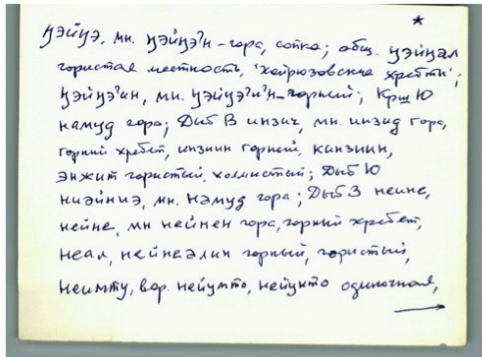 *
ӈэйӈэ, мн. ӈэйӈэ'н – гора, сопка; общ. ӈэйӈал
гористая местность, 'хайрюзовские хребты';
ӈэйӈэ'ин, мн. ӈэйӈэ'и'н – горный; Крш Ю
намуд гора; Дыб В инзич, мн. инзид гора,
горный хребет, инзиин горный, кинзиин,
энжит гористый, холмистый; Дыб Ю
ниэйниэ, мн. нэмуд гора; Дыб З неине,
нейне, мн нейнен гора, горный хребет,
неал, нейнеэлин горный, гористый,
неимту, вар. нейумто, нейунто одиночная,
→